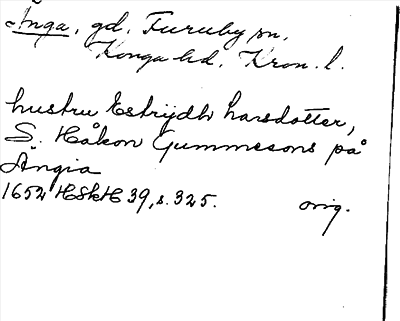 Ånga, gd. Furuby sn,
Konga hd, Kron. l.
hustru Estrijdh Larsdotter,
S. Håkon Gummesons på
Ångia
1652 HSkH 39, s. 325. orig.